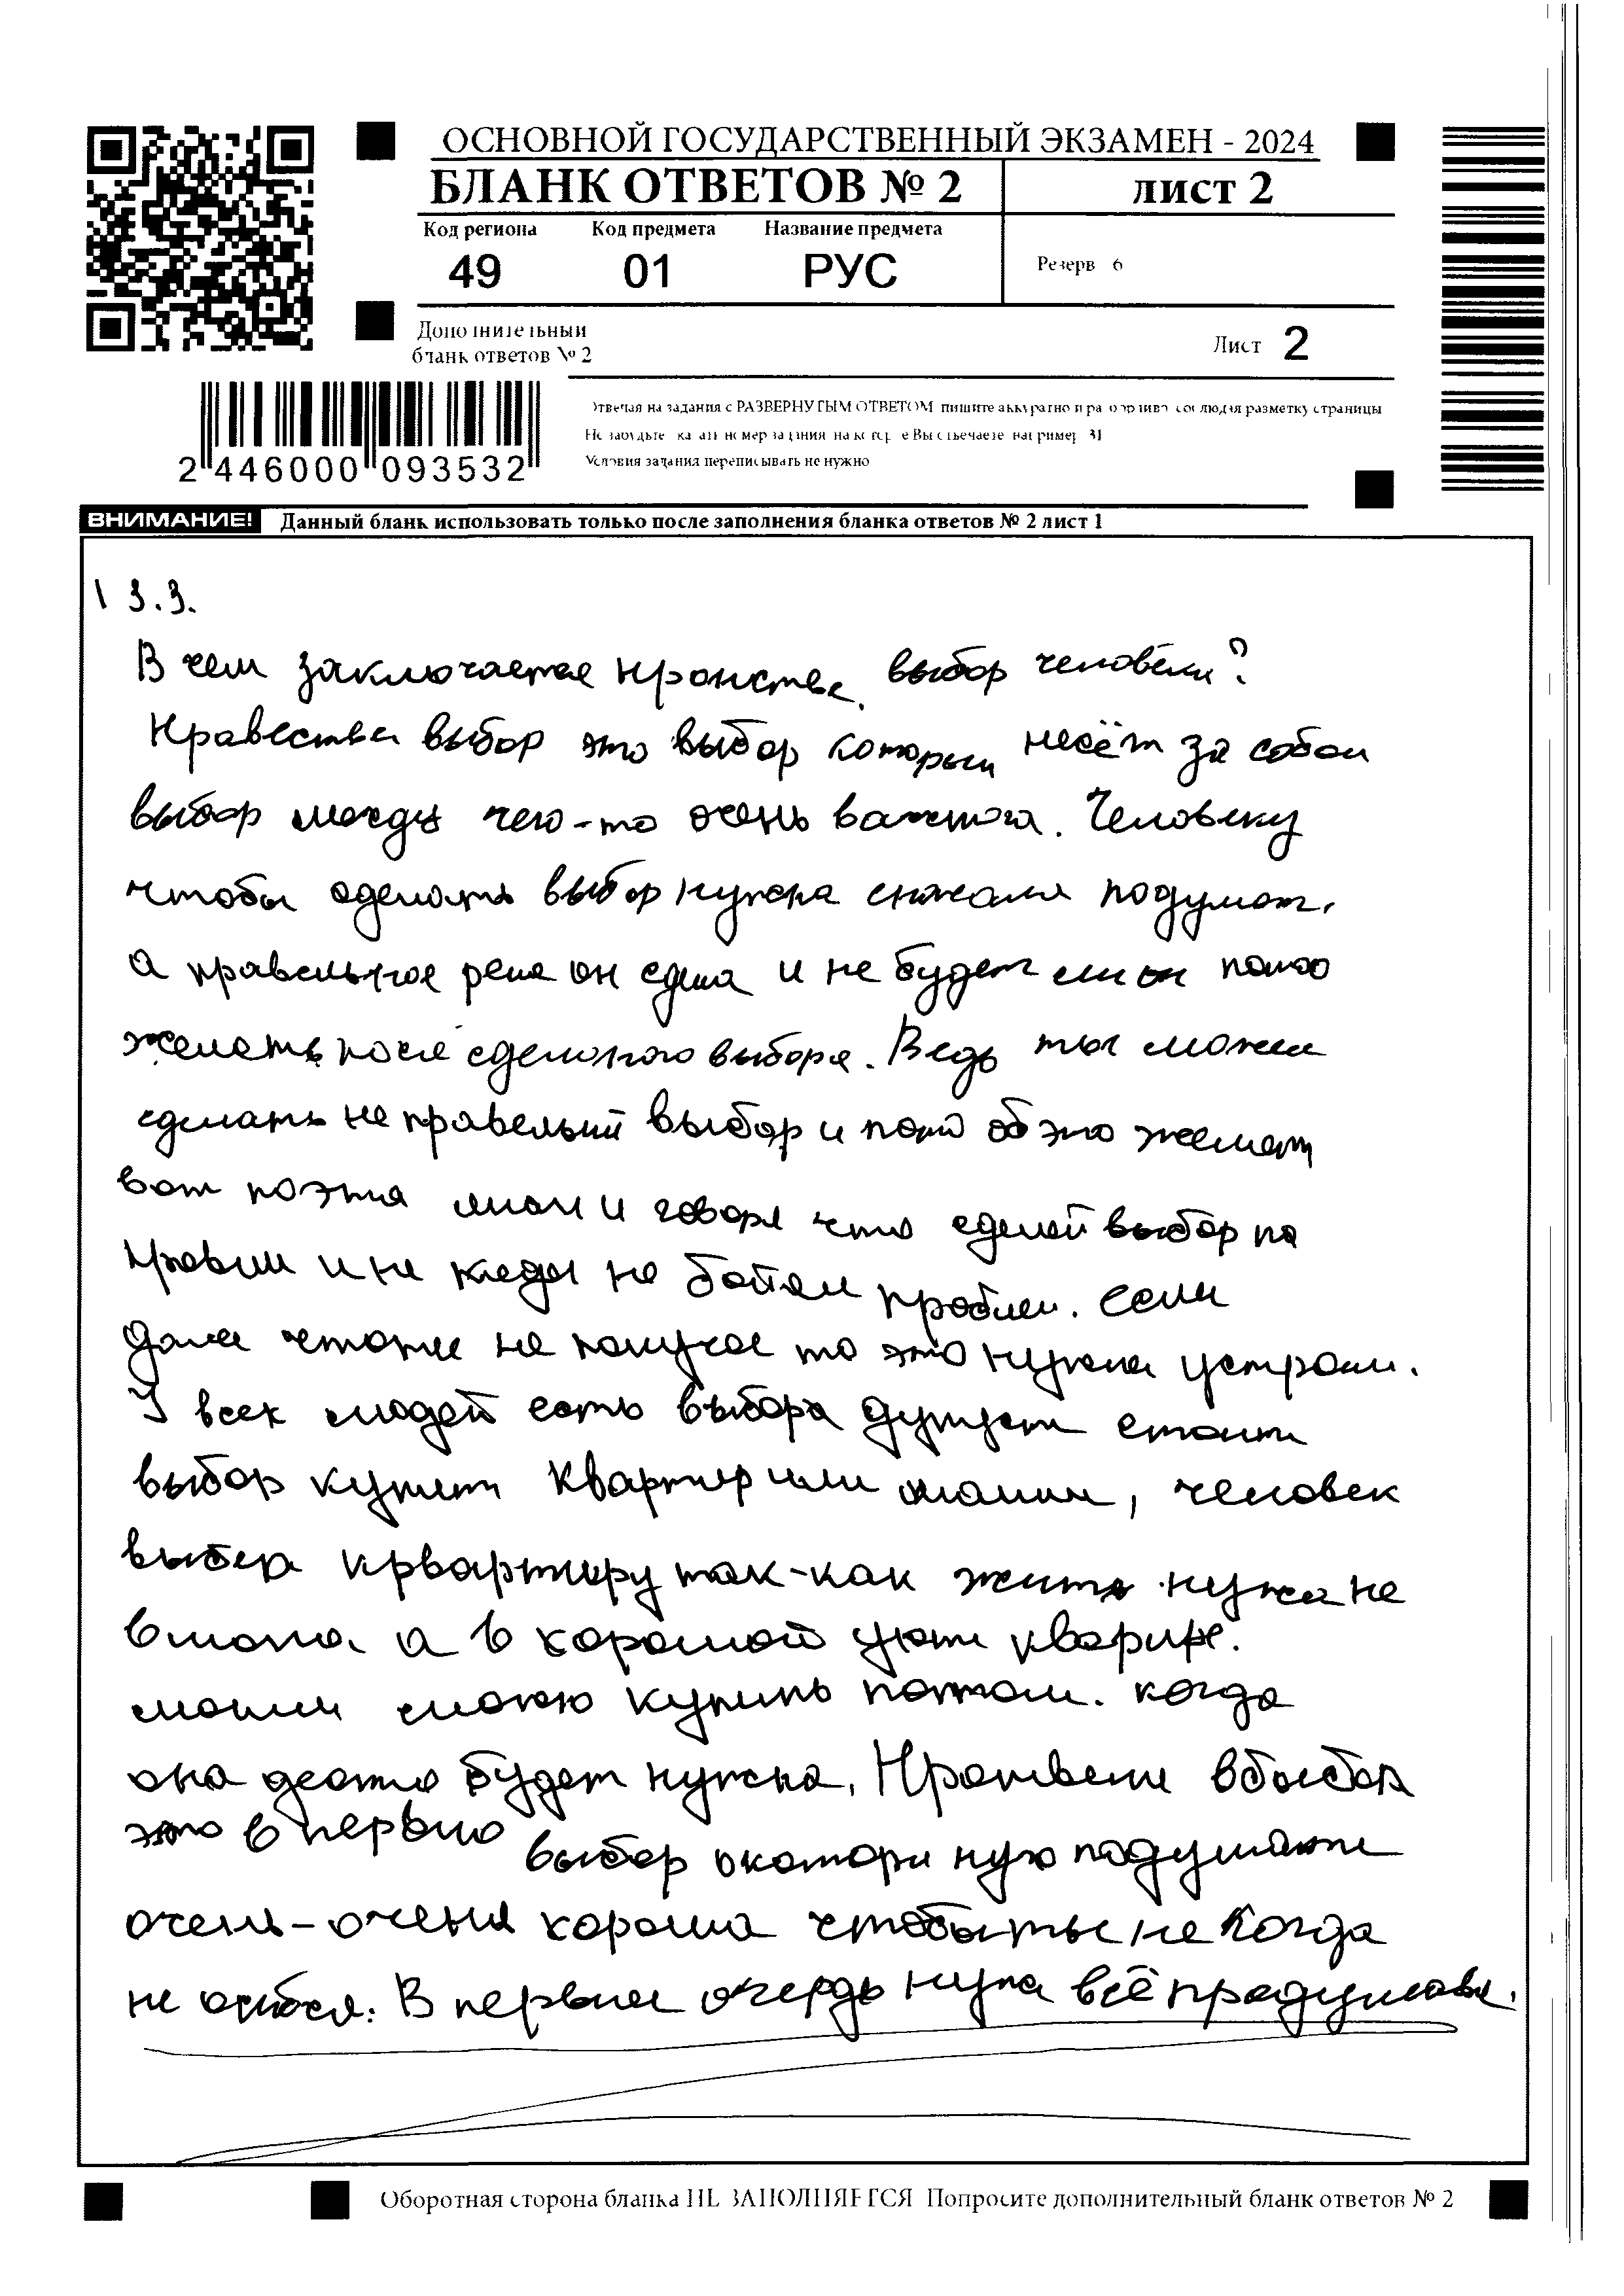 ОСНОВНОЙ ГОСУДАРСТВЕННЫЙ ЭКЗАМЕН - 2024
БЛАНК ОТВЕТОВ № 2
лист 2
Код региона Код предмета Название предмета
49 01 РУС
Резерв 6
Дополнительный
бланк ответов № 2
Лист 2
Отвечая на задания с РАЗВЕРНУТЫМ ОТВЕТОМ пишите аккуратно и разборчиво соблюдая разметку страницы
Не забудьте указать номер задания на который Вы отвечаете например 31
Условия задания переписывать не нужно
2 446000 093532
ВНИМАНИЕ! Данный бланк использовать только после заполнения бланка ответов № 2 лист 1
13.3.
В чем заключается выбор человека?
выбор это выбор которы несёт за собои
выбор между чего-то очень важнога. Человеку
чтобы сделать выбор нужна сначала подумат.
а правельное реше он сдела и не будет ли он
желеть после сделоного выбора. Ведь ты можеш
сделать не правельий выбор и пото об это желет
вот поэта и говоря что сделай выбор па
и не не бойся проблем. если
не получае то это нужна устрои.
У всех людей есть выбора стоит
выбор купит квартир или машин, человек
выбера крвартиру так-как жить нужна не
а в хорошой уютн кварире.
машин можно купить потом. когда
она будет нужна. вбыбор
это в первыю выбор нужо падумать
очень-очень хороша чтобы ты не когда
не ошибся. В первыя очердь нужа всё
Оборотная сторона бланка НЕ ЗАПОЛНЯЕТСЯ Попросите дополнительный бланк ответов № 2